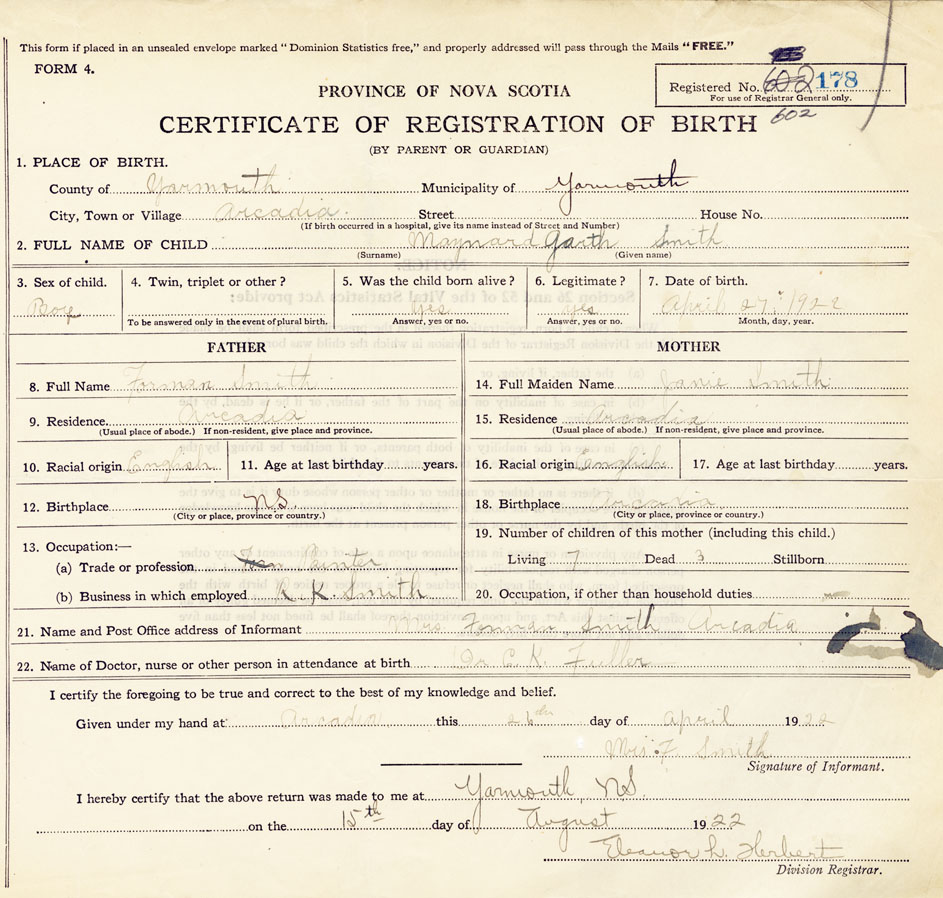 This form if placed in an unsealed envelope marked "Dominion Statistics free," and properly addressed will pass through the Mails "FREE."
FORM 4.
Registered No. 602 178
For use of Registrar General only.
602
PROVINCE OF NOVA SCOTIA
CERTIFICATE OF REGISTRATION OF BIRTH
(BY PARENT OR GUARDIAN)
1. PLACE OF BIRTH.
County of Yarmouth Municipality of Yarmouth
City, Town or Village Arcadia Street House No.
(If birth occurred in a hospital, give its name instead of Street and Number)
2. FULL NAME OF CHILD Maynard Garth Smith
(Surname) (Given name)
3. Sex of child. 4. Twin, triplet or other? 5. Was the child born alive? 6. Legitimate? 7. Date of birth.
Boy yes yes April 27, 1922
To be answered only in the event of plural birth. Answer, yes or no. Answer, yes or no. Month, day, year.
FATHER MOTHER
8. Full Name Forman Smith 14. Full Maiden Name Janie Smith
9. Residence. Arcadia 15. Residence Arcadia
(Usual place of abode.) If non-resident, give place and province. (Usual place of abode.) If non-resident, give place and province.
10. Racial origin English 11. Age at last birthday years. 16. Racial origin English 17. Age at last birthday years.
12. Birthplace N.S. 18. Birthplace
(City or place, province or country.) (City or place, province or country.)
19. Number of children of this mother (including this child.)
13. Occupation:—
(a) Trade or profession Painter Living 7 Dead 3 Stillborn
(b) Business in which employed K. K. Smith 20. Occupation, if other than household duties
21. Name and Post Office address of Informant Mrs. Forman Smith Arcadia
22. Name of Doctor, nurse or other person in attendance at birth Dr C. K. Fuller
I certify the foregoing to be true and correct to the best of my knowledge and belief.
Given under my hand at Arcadia this 26th day of April 1922
Mrs. F. Smith
Signature of Informant.
I hereby certify that the above return was made to me at Yarmouth, N.S.
on the 15th day of August 1922
Eleanor L. Herbert
Division Registrar.